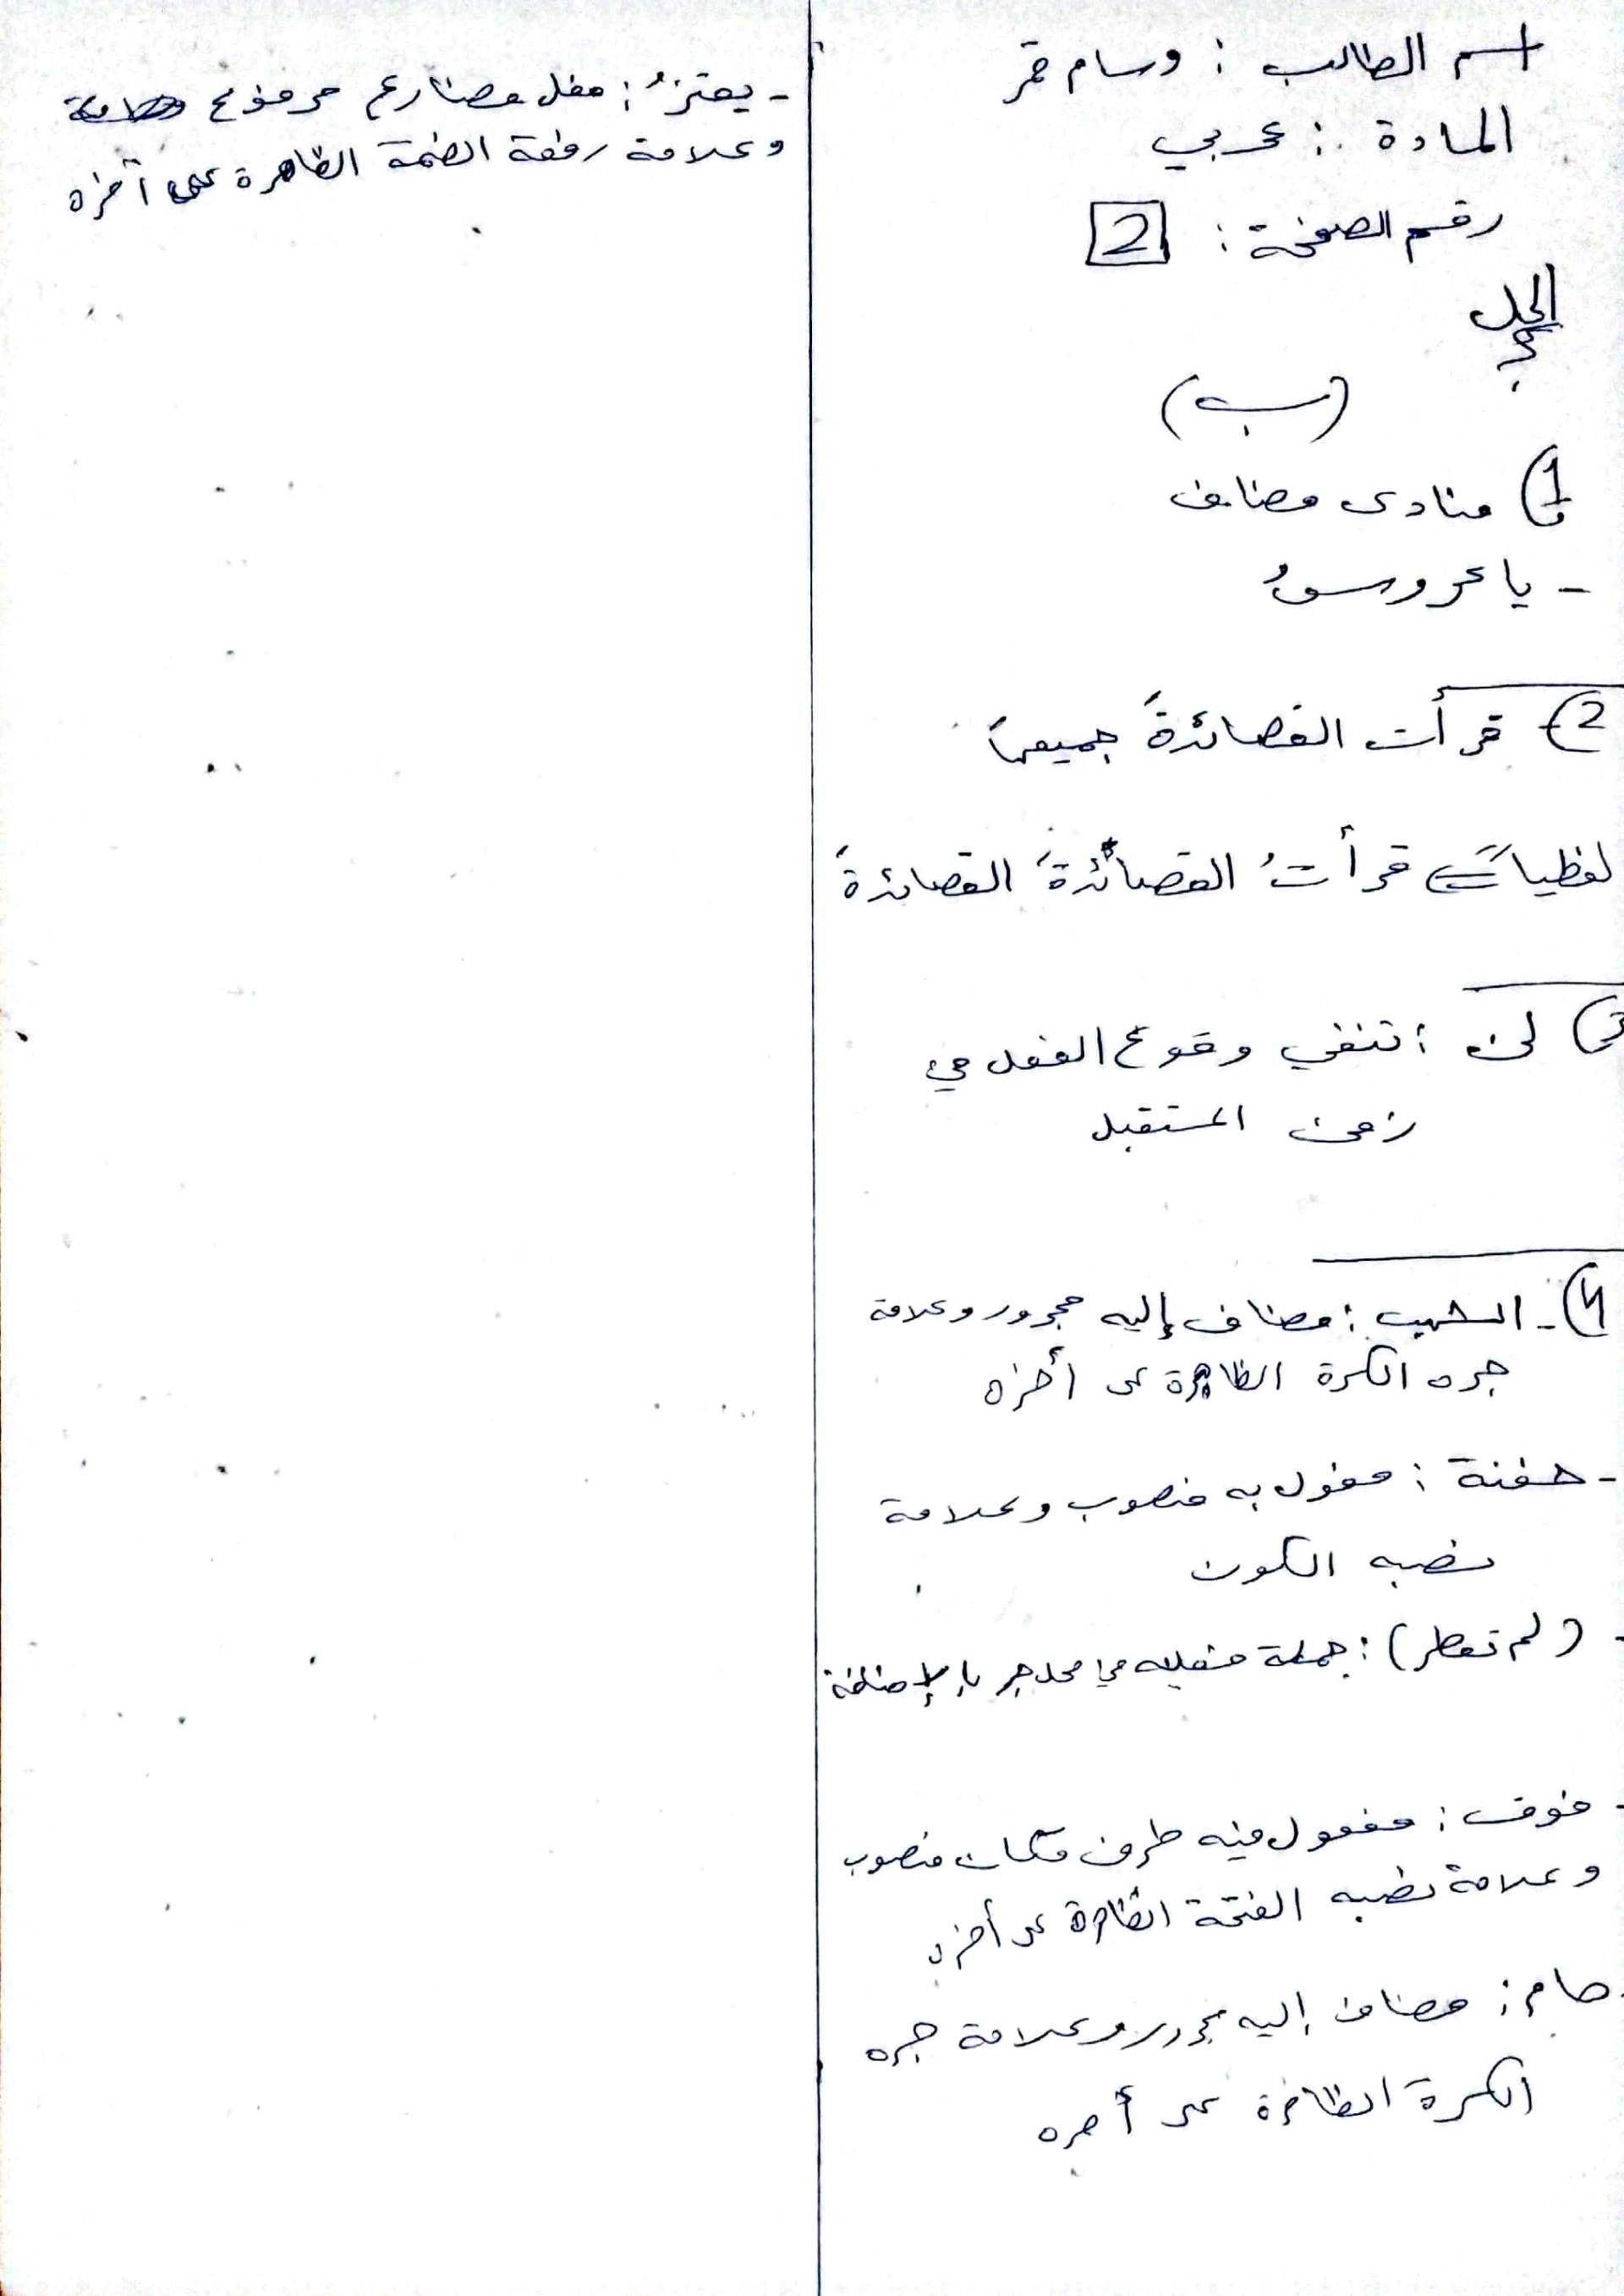 اسم الطالب : وسام قمر
المادة : عربي
رقم الصفحة : 2
الحل
(ب)
1) منادى مضاف
- يا عروسُ
2) قرأت القصائدةَ جميعاً
لفظياً قرأتُ القصائدةَ القصائدةَ
3) لن : تنفي وقوع الفعل في
زمن المستقبل
4) - الشهب : مضاف إليه مجرور وعلامة
جره الكسرة الظاهرة على أخره
- حفنة : مفعول به منصوب وعلامة
نصبه السكون
- (لم تعطر) : جملة فعليه في محل جر بالإضافة
- فوق : مفعول فيه ظرف مكان منصوب
وعلامة نصبه الفتحة الظاهرة على أخره
- هام : مضاف إليه مجرور وعلامة جره
الكسرة الظاهرة على أخره
- يعتزُ : فعل مضارع مرفوع
وعلامة رفعة الضمة الظاهرة على آخره